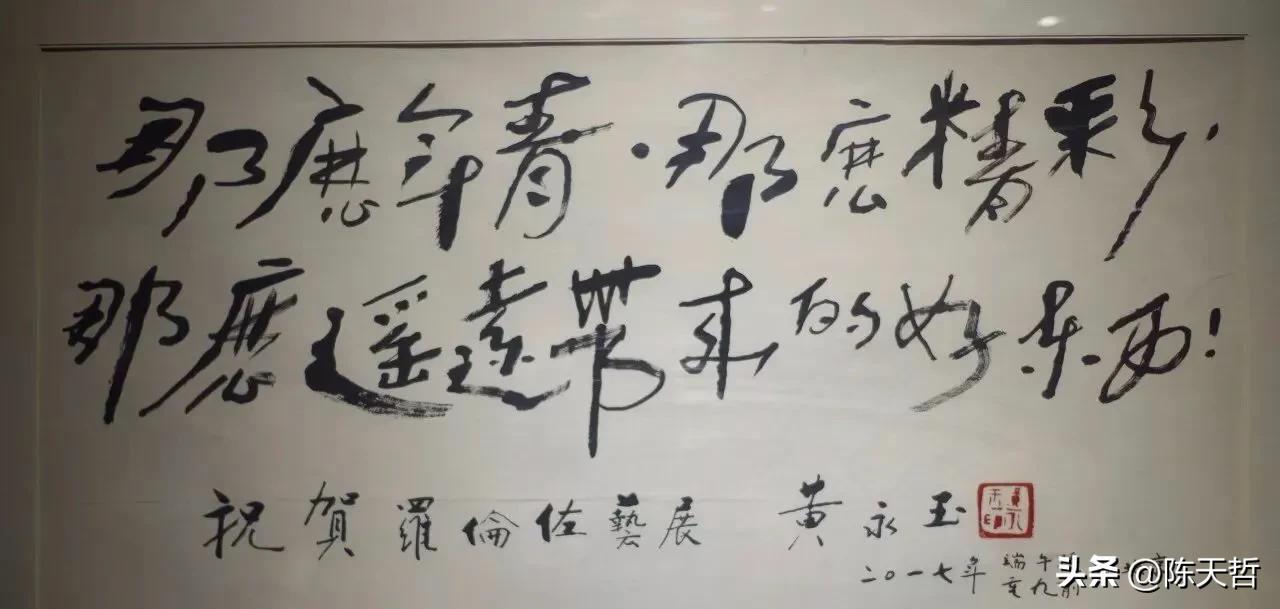 那麽年青·那麽精彩，
那麽遥遠带来的好东西！
祝賀羅倫佐藝展 黄永玉
黄永玉印
二〇一七年 端午前
头条 @陈天哲